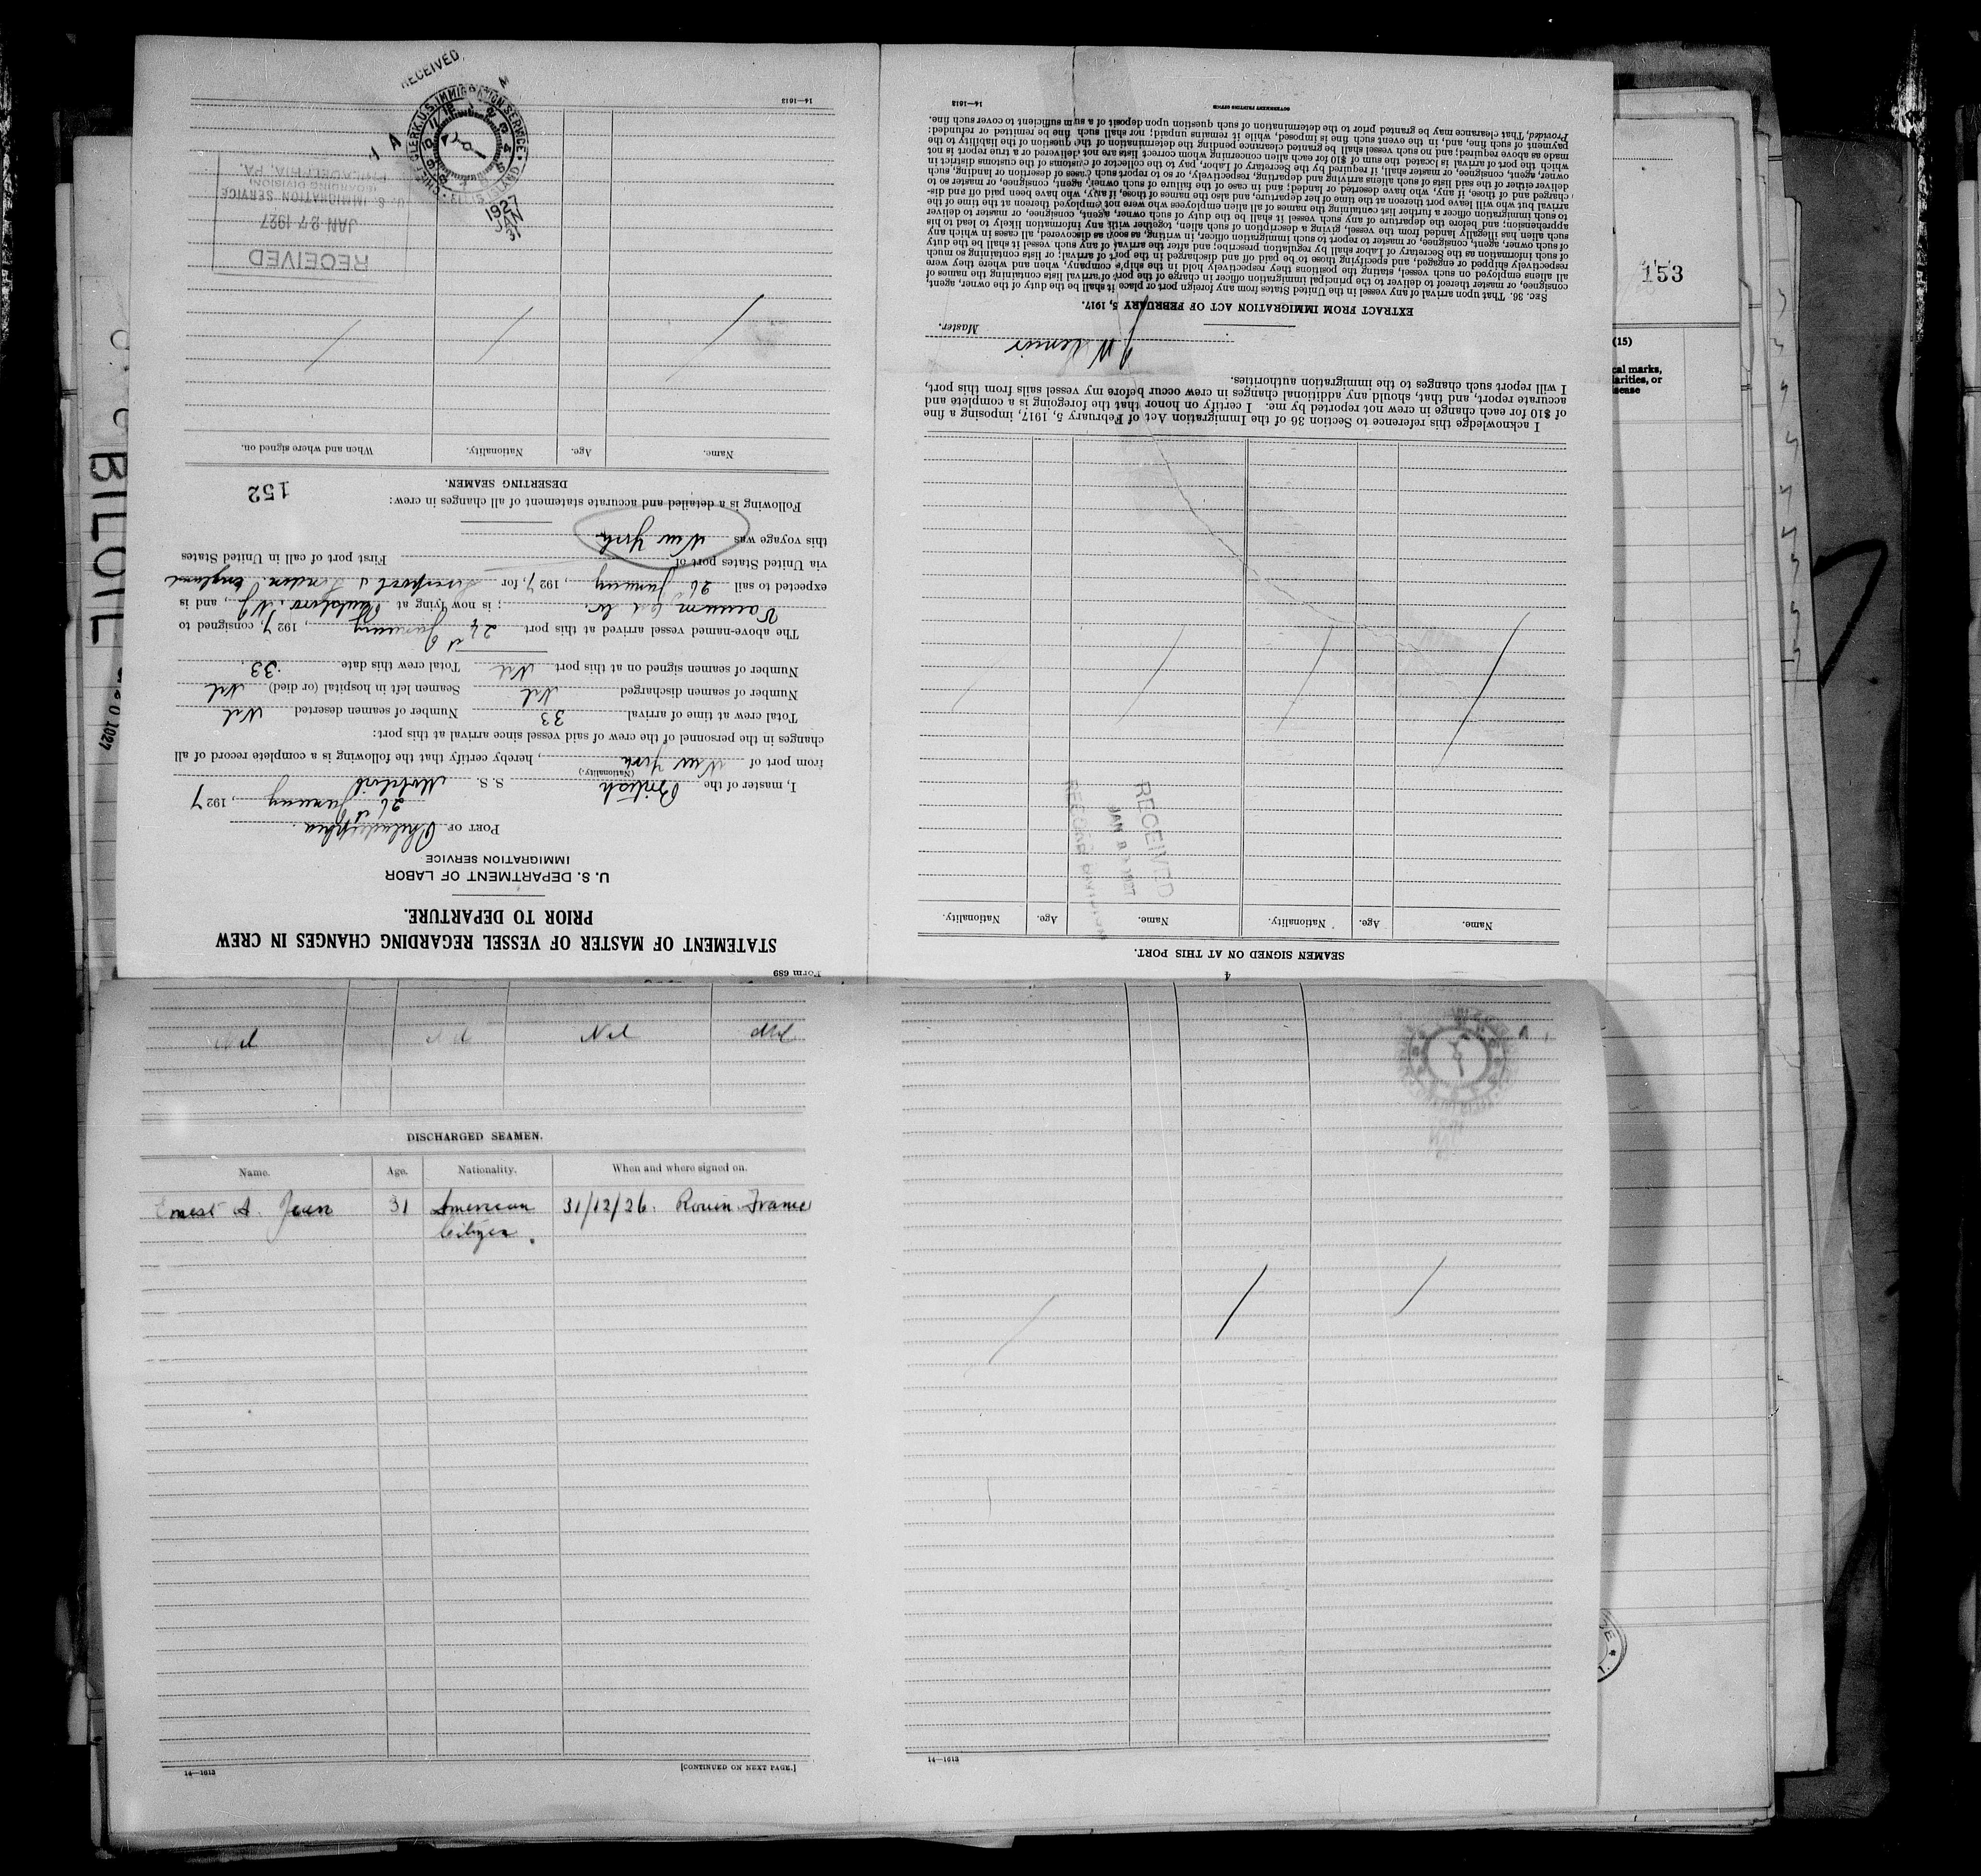 Form 689
STATEMENT OF MASTER OF VESSEL REGARDING CHANGES IN CREW
PRIOR TO DEPARTURE.
U. S. DEPARTMENT OF LABOR
IMMIGRATION SERVICE
PORT OF Philadelphia.
26 January, 1927
I, master of the British S. S.
(Nationality.)
from port of New York, hereby certify that the following is a complete record of all
changes in the personnel of the crew of said vessel since arrival at this port:
Total crew at time of arrival 33 Number of seamen deserted Nil
Number of seamen discharged Nil Seamen left in hospital (or died) Nil
Number of seamen signed on at this port Nil Total crew this date 33
The above-named vessel arrived at this port 24 January, 1927, consigned to
Vacuum Oil Co.; is now lying at Paulsboro. NJ, and is
expected to sail 26 January, 1927, for Liverpool & London. England
via United States port of First port of call in United States
this voyage was New York
Following is a detailed and accurate statement of all changes in crew:
152
DESERTING SEAMEN.
Name. Age. Nationality. When and where signed on.
RECEIVED
JAN 27 1927
U. S. IMMIGRATION SERVICE
(BOARDING DIVISION)
PHILADELPHIA, PA.
RECEIVED
CHIEF CLERK, U.S. IMMIGRATION SERVICE
1927
JAN
31
14—1613
4
SEAMEN SIGNED ON AT THIS PORT.
Name. Age. Nationality. Name. Age. Nationality.
RECEIVED
I acknowledge this reference to Section 36 of the Immigration Act of February 5, 1917, imposing a fine
of $10 for each change in crew not reported by me. I certify on honor that the foregoing is a complete and
accurate report, and, that, should any additional changes in crew occur before my vessel sails from this port,
I will report such changes to the immigration authorities.
Master.
EXTRACT FROM IMMIGRATION ACT OF FEBRUARY 5, 1917.
SEC. 36. That upon arrival of any vessel in the United States from any foreign port or place it shall be the duty of the owner, agent,
consignee, or master thereof to deliver to the principal immigration officer in charge of the port of arrival lists containing the names of
all aliens employed on such vessel, stating the positions they respectively hold in the ship's company, when and where they were
respectively shipped or engaged, and specifying those to be paid off and discharged in the port of arrival; or lists containing so much
of such information as the Secretary of Labor shall by regulation prescribe; and after the arrival of any such vessel it shall be the duty
of such owner, agent, consignee, or master to report to such immigration officer, in writing, as soon as discovered, all cases in which any
such alien has illegally landed from the vessel, giving a description of such alien, together with any information likely to lead to his
apprehension; and before the departure of any such vessel it shall be the duty of such owner, agent, consignee, or master to deliver
to such immigration officer a further list containing the names of all alien employees who were not employed thereon at the time of the
arrival but who will leave port thereon at the time of her departure, and also the names of those, if any, who have been paid off and dis-
charged and of those, if any, who have deserted or landed; and in case of the failure of such owner, agent, consignee, or master so to
deliver either of the said lists of such aliens arriving and departing, respectively, or so to report such cases of desertion or landing, such
owner, agent, consignee, or master shall, if required by the Secretary of Labor, pay to the collector of customs of the customs district in
which the port of arrival is located the sum of $10 for each alien concerning whom correct lists are not delivered or a true report is not
made as above required; and no such vessel shall be granted clearance pending the determination of the question of the liability to the
payment of such fine, and, in the event such fine is imposed, while it remains unpaid; nor shall such fine be remitted or refunded:
Provided, That clearance may be granted prior to the determination of such question upon deposit of a sum sufficient to cover such fine.
14—1613
GOVERNMENT PRINTING OFFICE
Nil Nil Nil Nil
DISCHARGED SEAMEN.
Name. Age. Nationality. When and where signed on.
Ernest A. 31 American 31/12/26. Rouen France
Citizen.
14—1613
[CONTINUED ON NEXT PAGE.]
14—1613
153
(15)
cal marks,
larities, or
sease
BILOIL